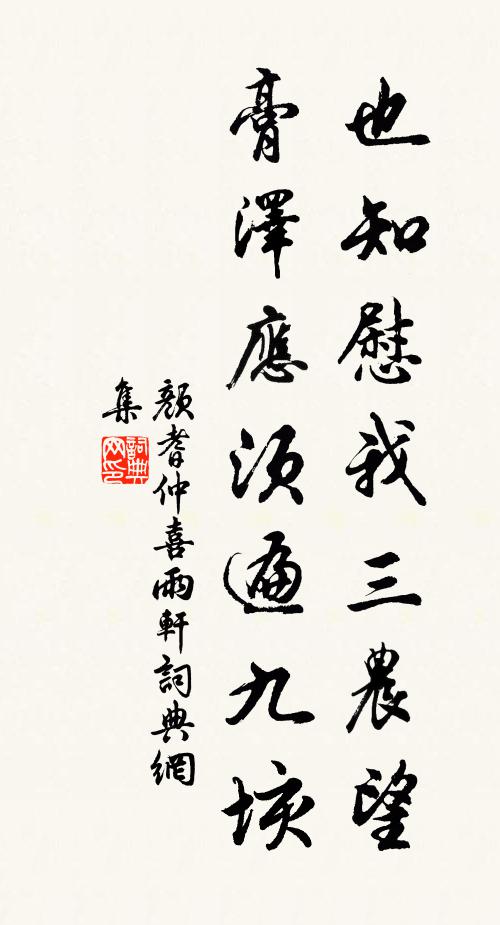 也知慰我三農望
膏澤應須遍九垓
顏耆仲喜雨軒詞典網
集
詞典網印